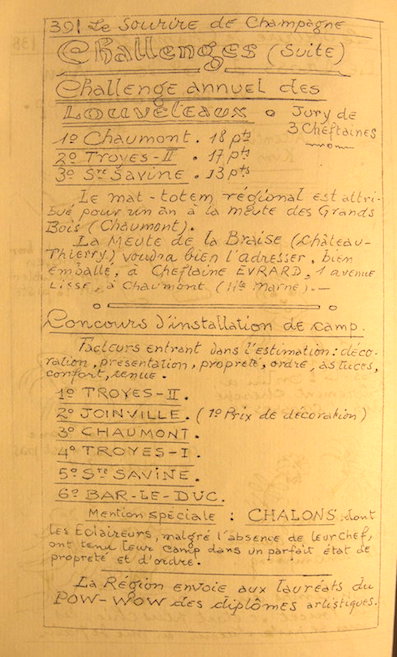 39| Le Sourire de Champagne
Challenges (Suite)
Challenge annuel des
Louveteaux o Jury de
3 Cheftaines
1º Chaumont. 18 pts
2º Troyes-II. 17 pts
3º Ste Savine. 13 pts
Le mat-totem régional est attri-
bué pour un an à la meute des Grands
Bois (Chaumont).
La Meute de la Braise (Château-
Thierry) voudra bien l'adresser, bien
emballé, à Cheftaine EVRARD, 1 avenue
Lisse, à Chaumont (Hte Marne).—
Concours d'installation de camp.
Facteurs entrant dans l'estimation: déco-
ration, présentation, propreté, ordre, astuces,
confort, tenue.
1º TROYES-II.
2º JOINVILLE. (1º Prix de décoration)
3º CHAUMONT.
4º TROYES-I.
5º Ste SAVINE.
6º BAR-LE-DUC.
Mention spéciale : CHALONS, dont
les Eclaireurs, malgré l'absence de leur chef,
ont tenu leur camp dans un parfait état de
propreté et d'ordre.
La Région envoie aux lauréats du
POW-WOW des diplômes artistiques.